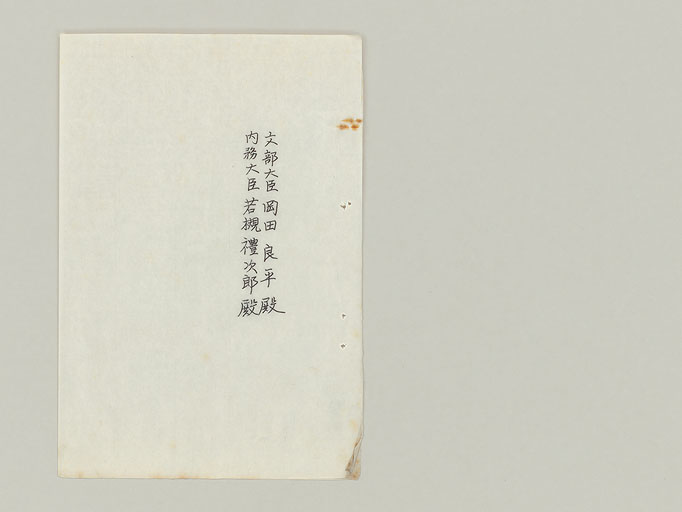 文部大臣 岡田 良平 殿
内務大臣 若槻 禮次郎 殿